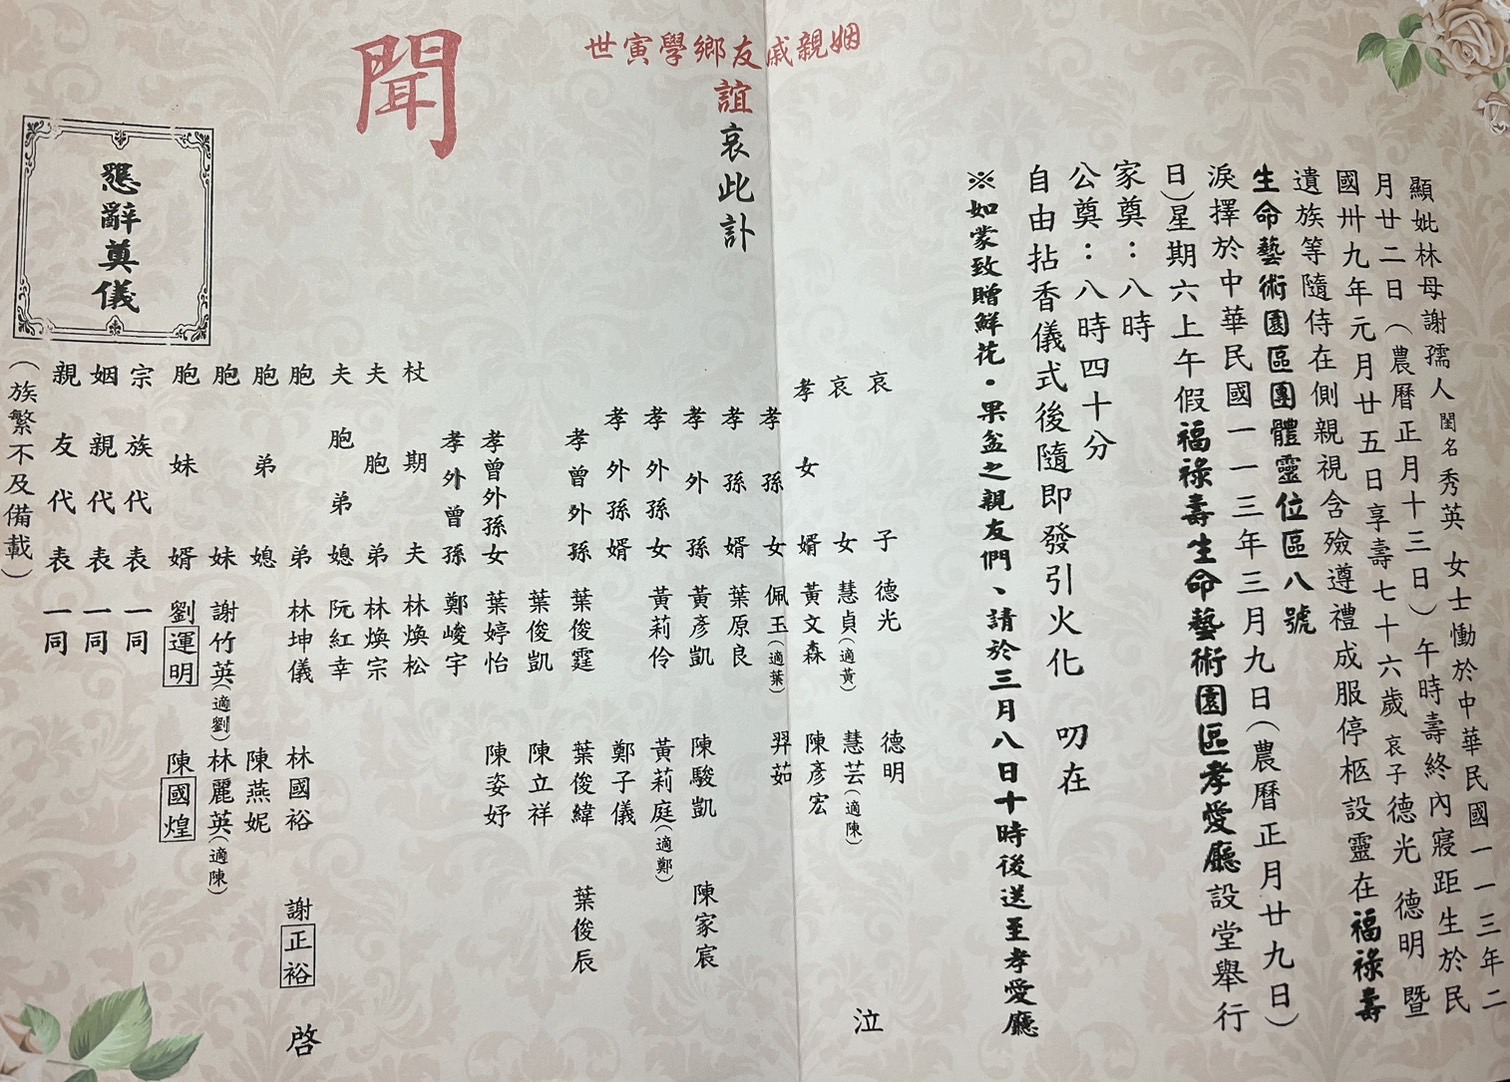 顯妣林母謝孺人閨名秀英女士慟於中華民國一一三年二
月廿二日（農曆正月十三日）午時壽終內寢距生於民
國卅九年元月廿五日享壽七十六歲哀子德光 德明 暨
遺族等隨侍在側親視含殮遵禮成服停柩設靈在福祿壽
生命藝術園區團體靈位區八號
淚擇於中華民國一一三年三月九日（農曆正月廿九日）
日）星期六上午假福祿壽生命藝術園區孝愛廳設堂舉行
家奠：八時
公奠：八時四十分
自由拈香儀式後隨即發引火化 叨在
※如蒙致贈鮮花・果盆之親友們、請於三月八日十時後送至孝愛廳
姻親戚友鄉學寅世
誼哀此訃
聞
哀子 德光 德明
哀女 慧貞（適黃） 慧芸（適陳） 泣
孝女婿 黃文森 陳彥宏
孝孫女 佩玉（適葉） 羿茹
孝孫婿 葉原良
孝外孫 黃彥凱 陳駿凱 陳家宸
孝外孫女 黃莉伶 黃莉庭（適鄭）
孝外孫婿 鄭子儀
孝曾外孫 葉俊霆 葉俊緯 葉俊辰
葉俊凱 陳立祥
孝曾外孫女 葉婷怡 陳姿妤
孝外曾孫 鄭峻宇
杖期夫 林煥松
夫胞弟 林煥宗
夫胞弟媳 阮紅幸
胞弟 林坤儀 林國裕 謝正裕 啓
胞弟媳 陳燕妮
胞妹 謝竹英（適劉） 林麗英（適陳）
胞妹婿 劉運明 陳國煌
宗族代表 一同
姻親代表 一同
親友代表 一同
（族繁不及備載）
懇辭奠儀